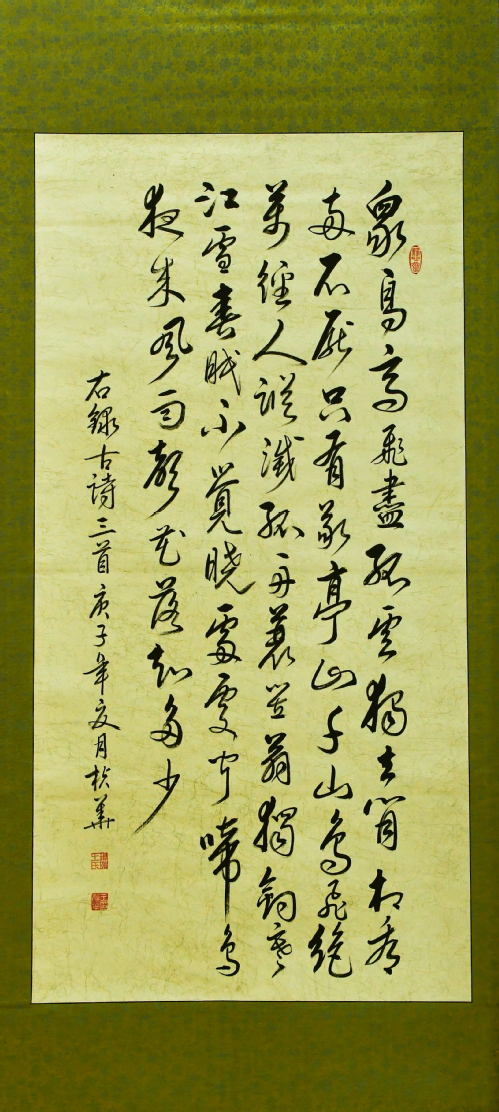 眾鳥高飛盡孤雲獨去閒相看
兩不厭只有敬亭山千山鳥飛絕
萬徑人蹤滅孤舟蓑笠翁獨釣寒
江雪春眠不覺曉處處聞啼鳥
夜來風雨聲花落知多少
右錄古詩三首庚子年夏月華